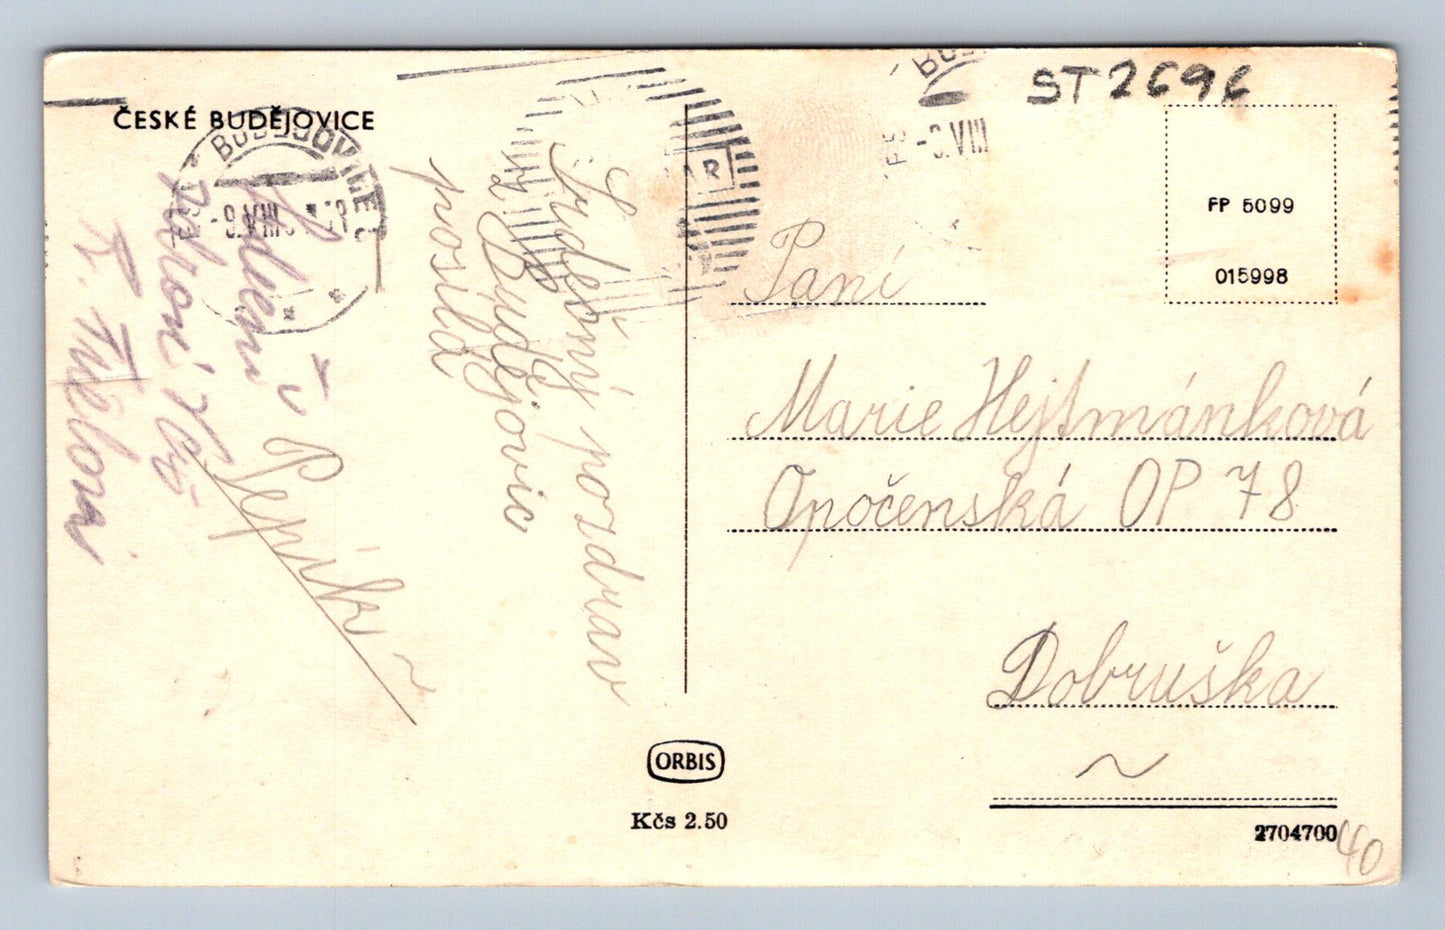 ČESKÉ BUDĚJOVICE
BUDĚJOVICE
-9.VIII
Srdečný pozdrav
z Budějovic
posílá
Pepík
ST2696
-9.VIII
FP 5099
015998
Paní
Marie Hejtmánková
Opočenská OP 78
Dobruška
ORBIS
Kčs 2.50
2704700
40